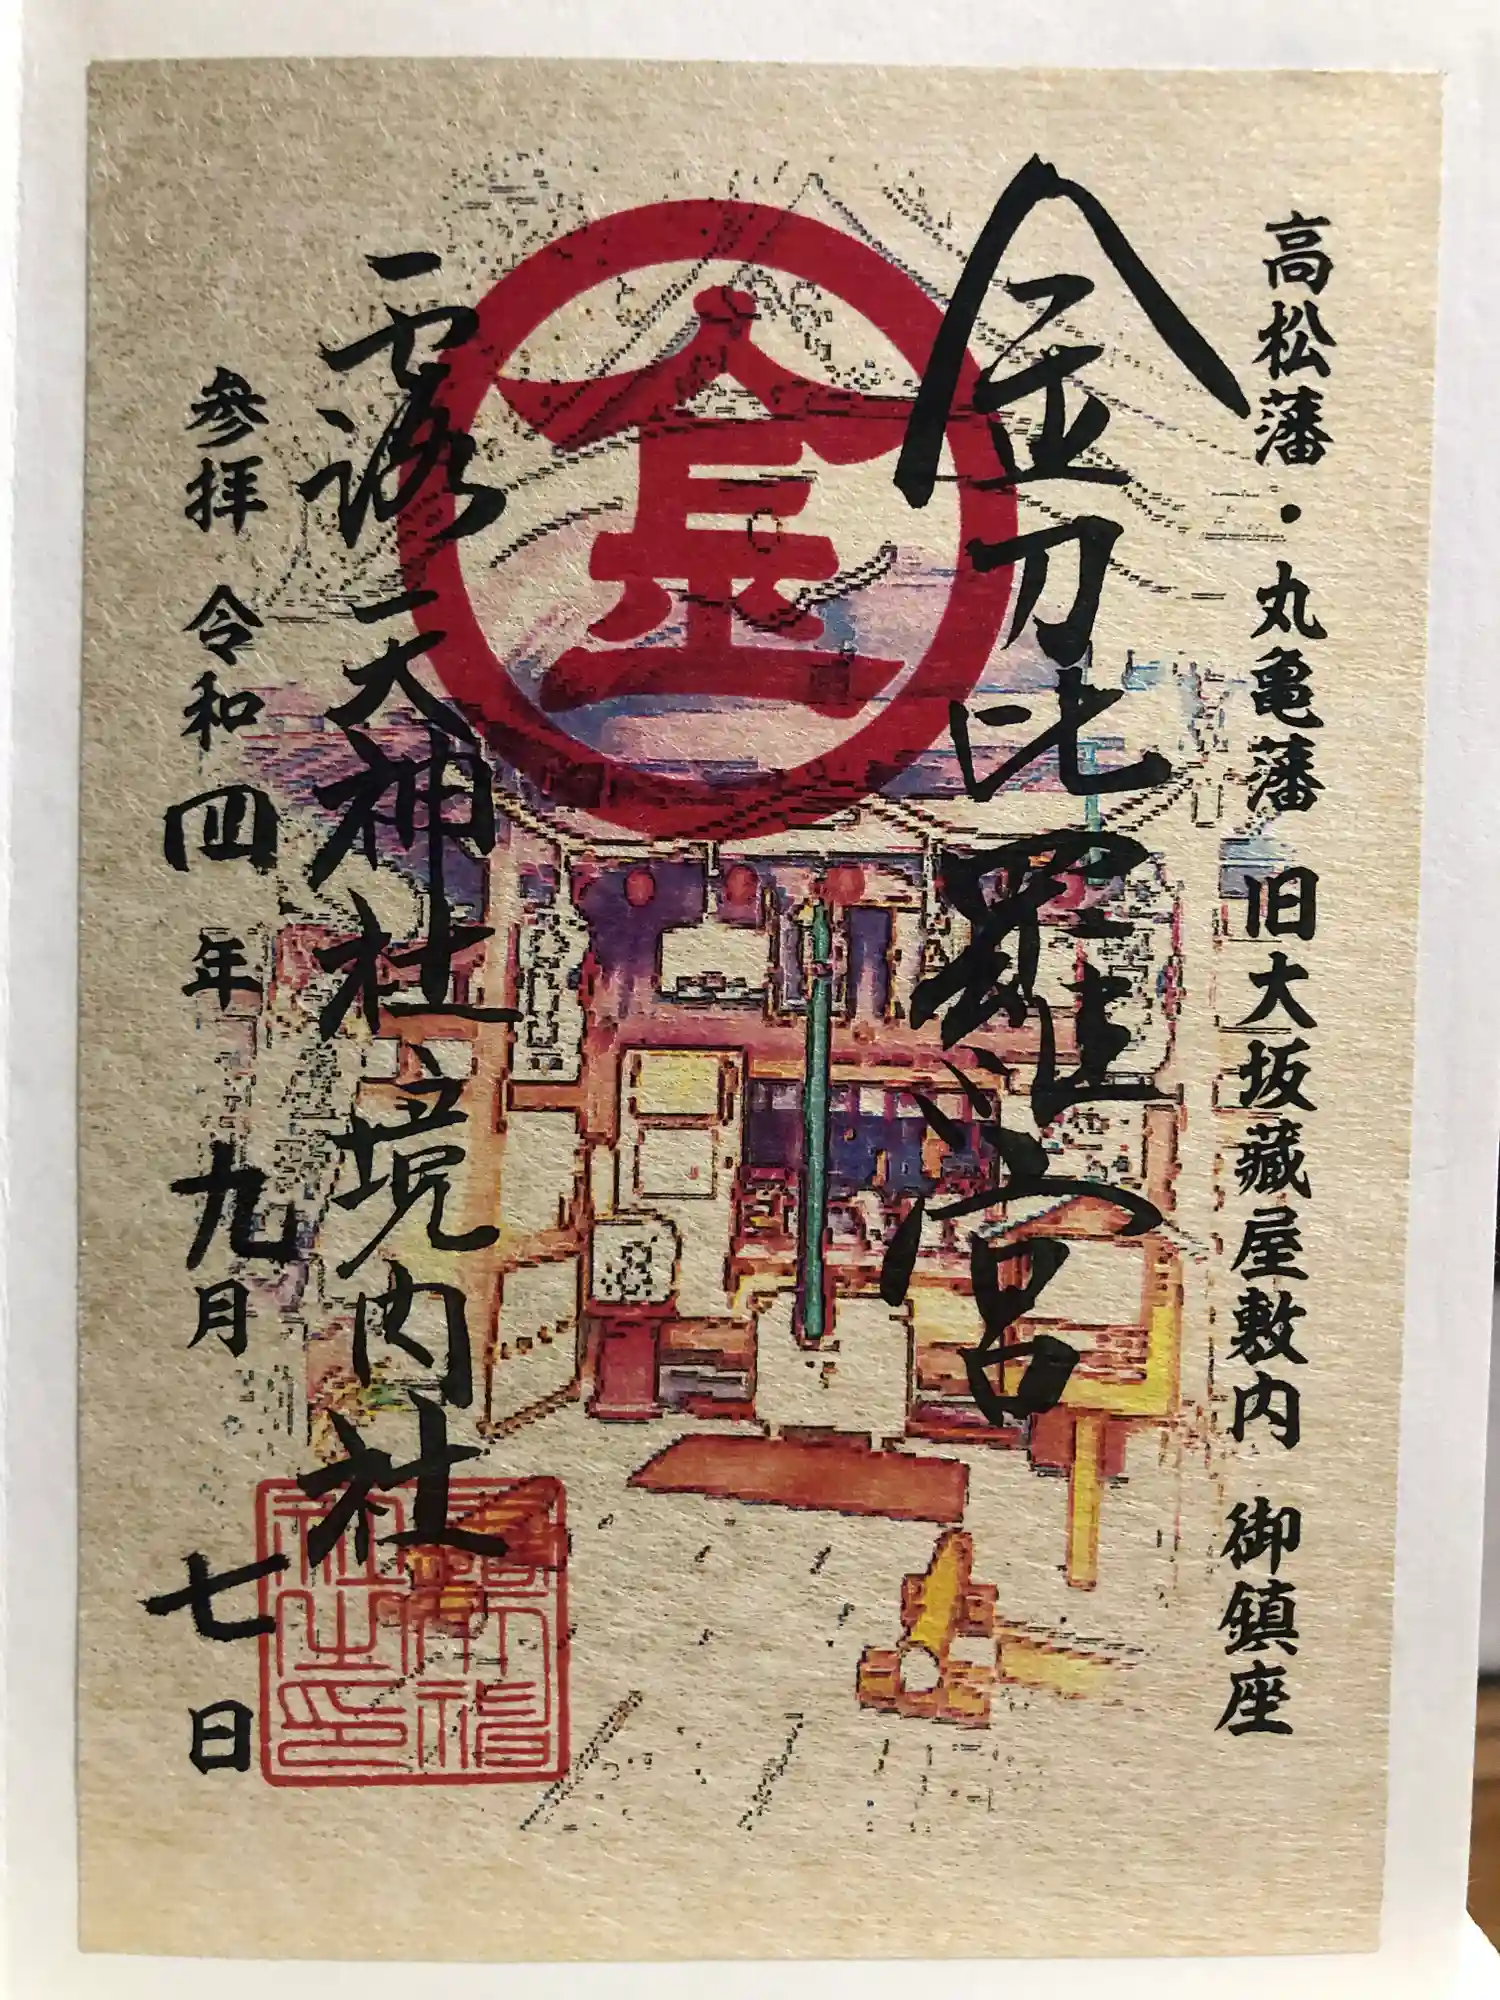 高松藩・丸亀藩 旧大坂藏屋敷内 御鎮座
金刀比羅宮
金
露天神社境内社
参拝 令和四年九月七日